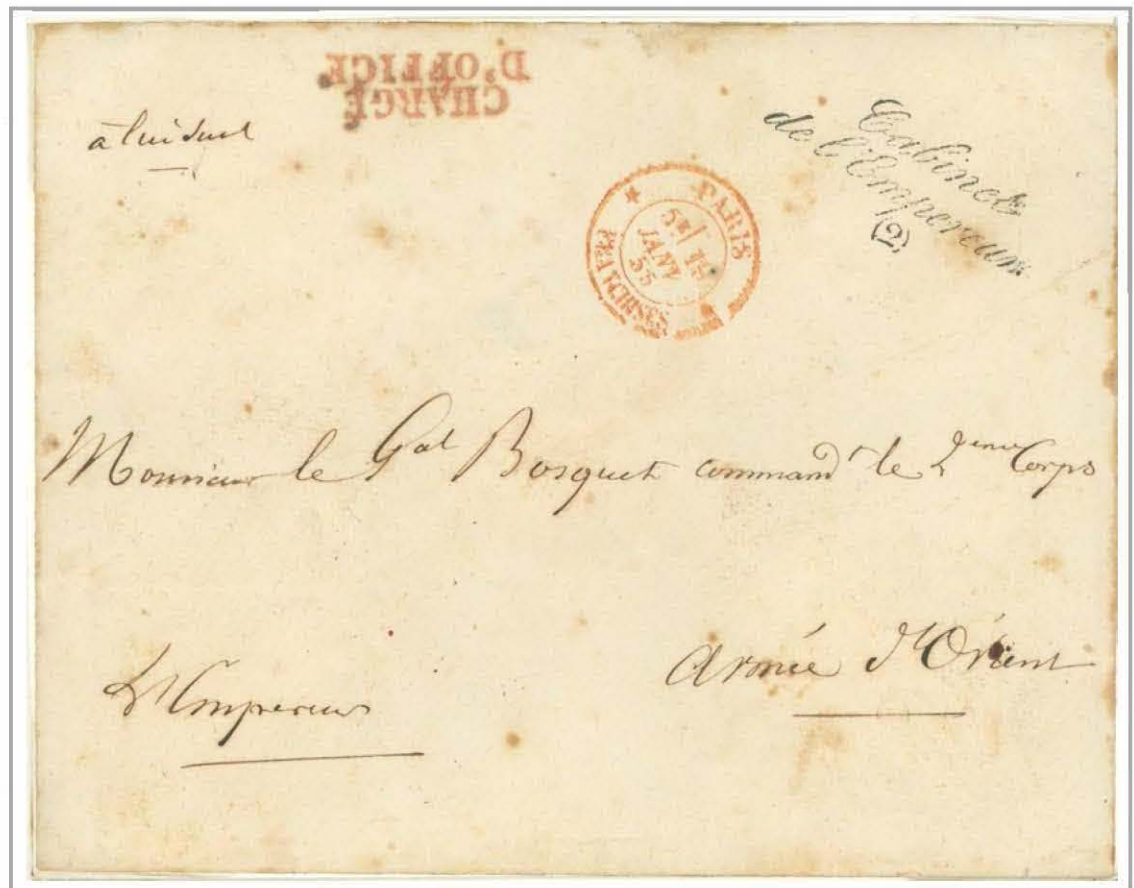 CHARGÉ
D'OFFICE
à lui seul
Cabinet
de l'Empereur
(2)
PARIS
5E 15
JANV
55
FRANCHISES
Monsieur le Gal Bosquet commandt le 2eme Corps
Armée d'Orient
L'Empereur